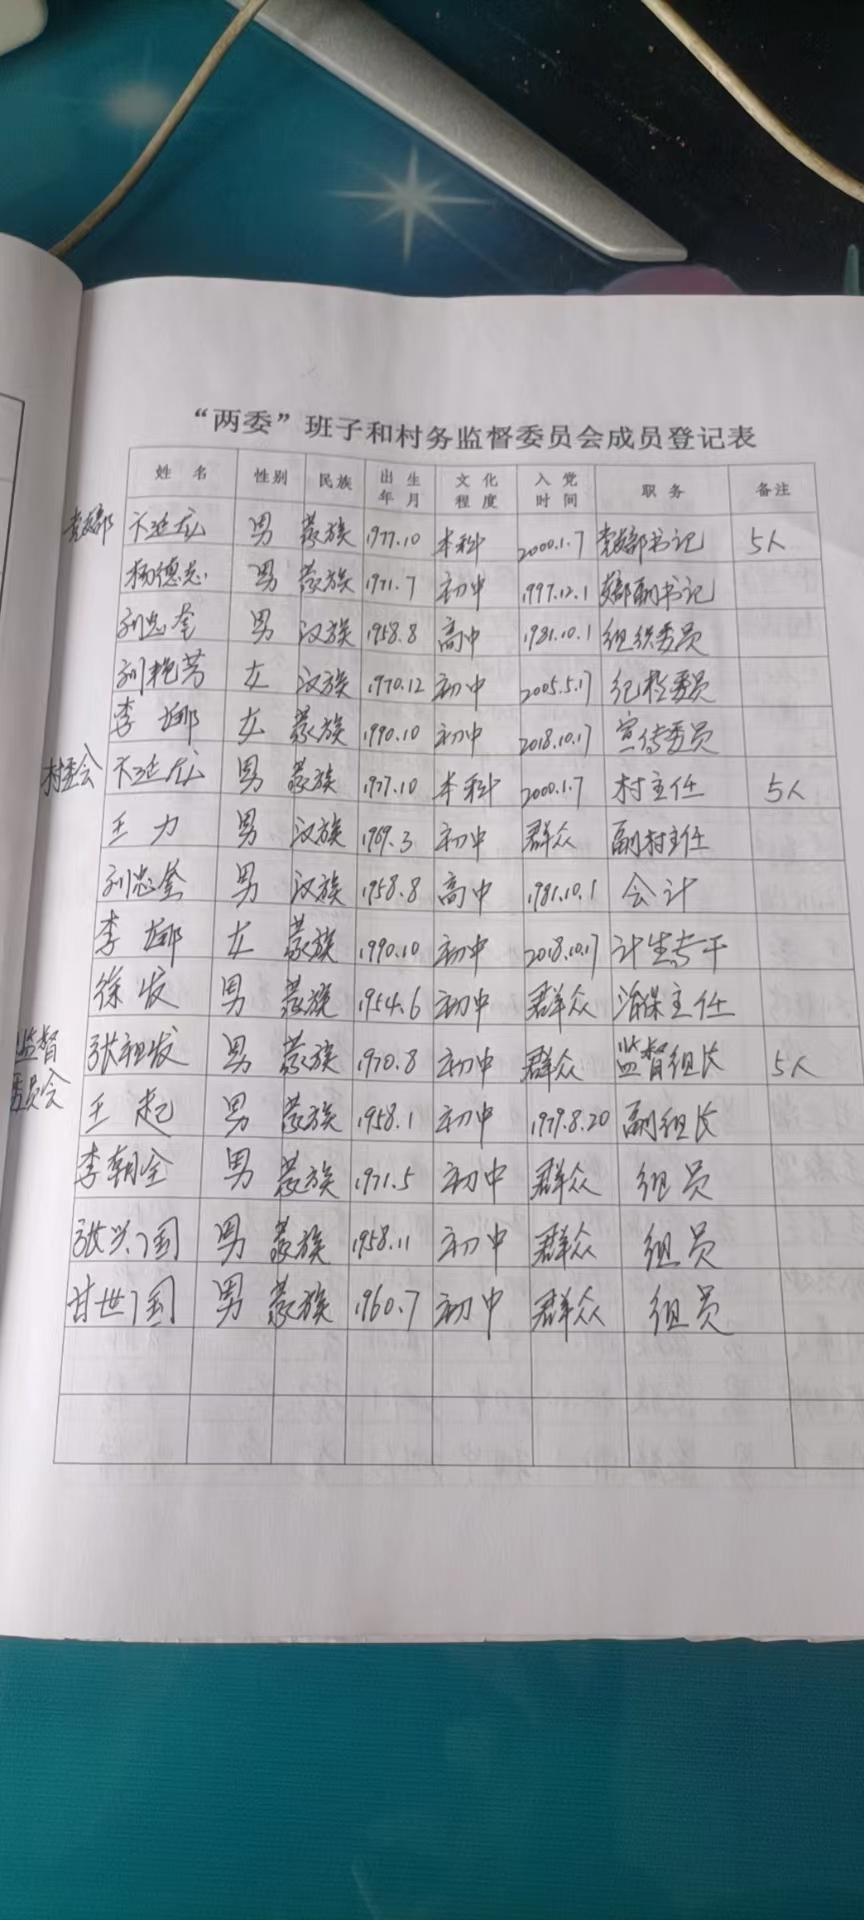 “两委”班子和村务监督委员会成员登记表
姓 名 性别 民族 出生年月 文化程度 入党时间 职务 备注
党支部 卞延龙 男 蒙族 1977.10 本科 2000.1.7 党支部书记 5人
杨德志 男 蒙族 1971.7 初中 1997.12.1 支部副书记
刘忠奎 男 汉族 1958.8 高中 1981.10.1 组织委员
刘艳芳 女 汉族 1970.12 初中 2005.5.17 纪检委员
李 娜 女 蒙族 1990.10 初中 2018.10.17 宣传委员
村委会 卞延龙 男 蒙族 1977.10 本科 2000.1.7 村主任 5人
王 力 男 汉族 1969.3 初中 群众 副村主任
刘忠奎 男 汉族 1958.8 高中 1981.10.1 会计
李 娜 女 蒙族 1990.10 初中 2018.10.17 计生专干
徐发 男 蒙族 1954.6 初中 群众 治保主任
监督委员会 张祖发 男 蒙族 1970.8 初中 群众 监督组长 5人
王 起 男 蒙族 1958.1 初中 1979.8.20 副组长
李朝全 男 蒙族 1971.5 初中 群众 组员
张兴国 男 蒙族 1958.11 初中 群众 组员
甘世国 男 蒙族 1960.7 初中 群众 组员